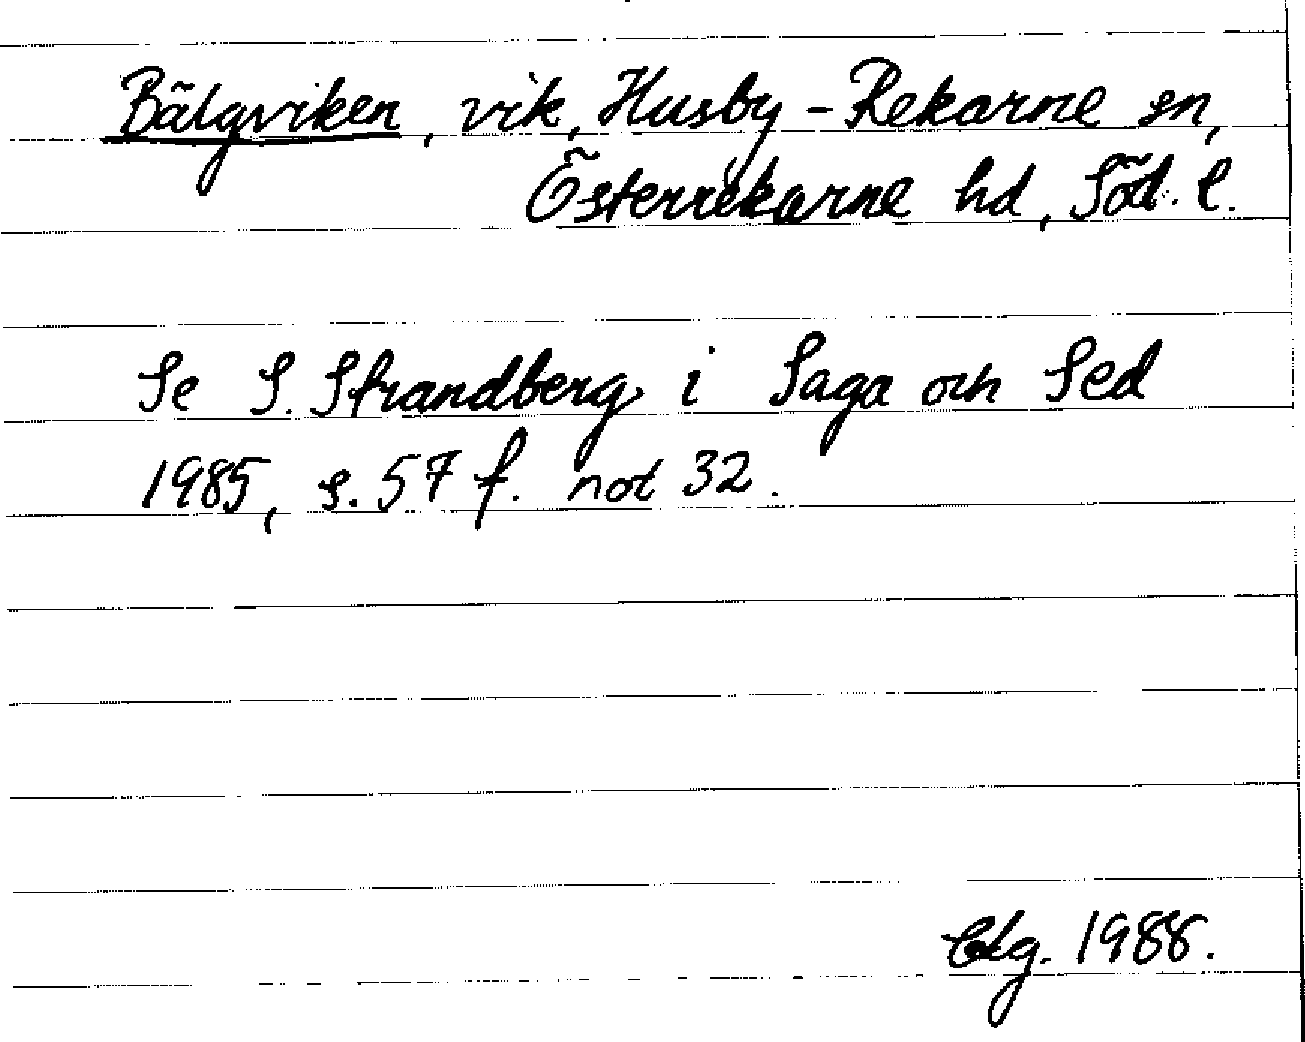 Bälgviken, vik, Husby-Rekarne sn,
Österrekarne hd, Söd. l.
Se S. Strandberg i Saga och Sed
1985, s. 57 f. not 32.
1988.